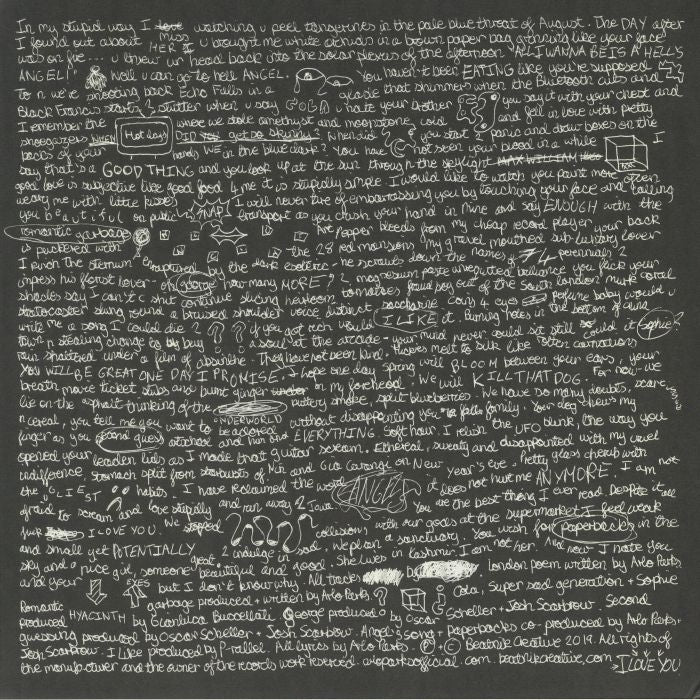 In my stupid way I watching u peel tangerines in the pale blue throat of August. The DAY after
I found out about HER I miss u brought me white orchids in a brown paper bag grinning like your face
was on fire... u threw ur head back into the solar plexus of the afternoon 'ALL I WANNA BE IS A HELL'S
ANGEL!' Well u can go to hell ANGEL. You haven't been EATING like you're supposed
To n we're shooting back Euro Falls in a glade that shimmers when the Bluetooth cuts and
Black Francis starts 2 stutter when u say GOLD u hate your brother you say it with your chest and
I remember the where we stole amethyst and moonstone, cold and fell in love with pretty
shoegazers WHEN Hot days DID YOU get so skinny? When did you start 2 panic and draw boxes on the
backs of your hands WE in the blue dark? You have not seen your blood in a while I
say that's a GOOD THING and you look up at the sun through the skylight
good love is subjective like good food 4 me it is stupidly simple I would like to watch you paint more often
weary me with little kisses SNAP! I will never tire of embarrassing you by touching your face and calling
you beautiful on public transport as you crush your hand in mine and say ENOUGH with the
romantic garbage Dre Pepper bleeds from my cheap record player your back
is puckered with the 28 red mansions my gravel mouthed sub-luxury lover
I punch the sternum enraptured by the dark esoteric - he scrawls down the names of 74 perennials 2
impress his first lover - George how many MORE? 2 magnesium paste unrequited brilliance you flick your
shades say I can't and shit continue slicing heirloom tomatoes fraud boy out of the South London murk coral
stratocaster slung round a bruised shoulder voice distinct saccharine Cola's 4 eyes perfume baby would u
write me a song I could die 2 ? ? if you got rich would I LIKE it. Burning holes in the bottom of
town n stealing change to buy a soul at the arcade - your mind never could sit still so could it Sophie
rain shattered under a film of absinthe. They have not been kind. Flickers melt to silk like rotten carnations
YOU WILL BE GREAT ONE DAY I PROMISE. I hope one day spring will BLOOM between your ears, your
breath movie ticket stubs and burnt ginger on my forehead. We will KILL THAT DOG. For now - we
lie on the asphalt thinking of the buttery smoke, split blueberries. We have so many doubts,
n cereal, you tell me you want to be adored UNDERWORLD without disappointing your family. Your dog chews my
finger as you (second guess) attached and hen and EVERYTHING. Soft hour. I relish the UFO blink, the way you
opened your leaden lids as I made that guitar scream. Ethereal, sweaty and disappointed with my cruel
indifference. Stomach split from starbursts of Kin and Gia Carangi on New Year's Eve. Pretty glass cherub with
the UGLIEST habits. I have reclaimed the word ANGEL it does not hurt me ANYMORE. I am not
afraid to scream and love stupidly and run away 2 Iowa. You are the best thing I ever read. Despite it all
I LOVE YOU. We collisions with our gods at the supermarket I feel weak
and small yet POTENTIALLY great 2 indulge in sad. We plan a sanctuary. You wish for paperbacks in the
sky and a nice girl, someone beautiful and good. She lives in Kashmir I am not her. And now I hate you
and your EYES but I don't know why. All tracks by london poem written by Arlo Parks.
Romantic garbage produced + written by Arlo Parks ? Cola, Super sad generation + Sophie
produced HYACINTH by Gianluca Buccellati. George produced by Oscar Scheller + Josh Scarbrow. Second
guessing produced by Oscar Scheller + Josh Scarbrow. Angel's song + Paperbacks co-produced by Arlo Parks +
Josh Scarbrow. I Like produced by P-rallel. All lyrics by Arlo Parks. ℗ + © Beatnik Creative 2019. All rights of
the manufacturer and the owner of the records work reserved. arloparksofficial.com. beatnikcreative.com. I LOVE YOU